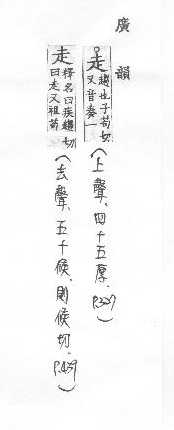 廣韻
走 趨也子苟切
又音奏一
(上聲、四十五厚、P.327)
走 釋名曰疾趨切
曰走又祖苟
(去聲、五十候、則候切、P.439)